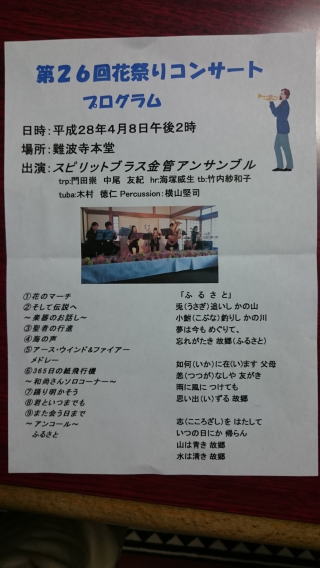 第26回花祭りコンサート
プログラム
日時：平成28年4月8日午後2時
場所：難波寺本堂
出演：スピリットブラス金管アンサンブル
trp:門田崇 中尾 友紀 hr:海塚威生 tb:竹内紗和子
tuba:木村 徳仁 Percussion：横山堅司
①花のマーチ
②そして伝説へ
～楽器のお話し～
③聖者の行進
④海の声
⑤アース・ウインド&ファイアー
メドレー
⑥365日の紙飛行機
～和尚さんソロコーナー～
⑦踊り明かそう
⑧君といつまでも
⑨また会う日まで
～アンコール～
ふるさと
「ふ る さ と」
兎(うさぎ)追いし かの山
小鮒(こぶな)釣りし かの川
夢は今も めぐりて、
忘れがたき 故郷(ふるさと)
如何(いか)に在(い)ます 父母
恙(つつが)なしや 友がき
雨に風に つけても
思い出(い)ずる 故郷
志(こころざし)を はたして
いつの日にか 帰らん
山は青き 故郷
水は清き 故郷